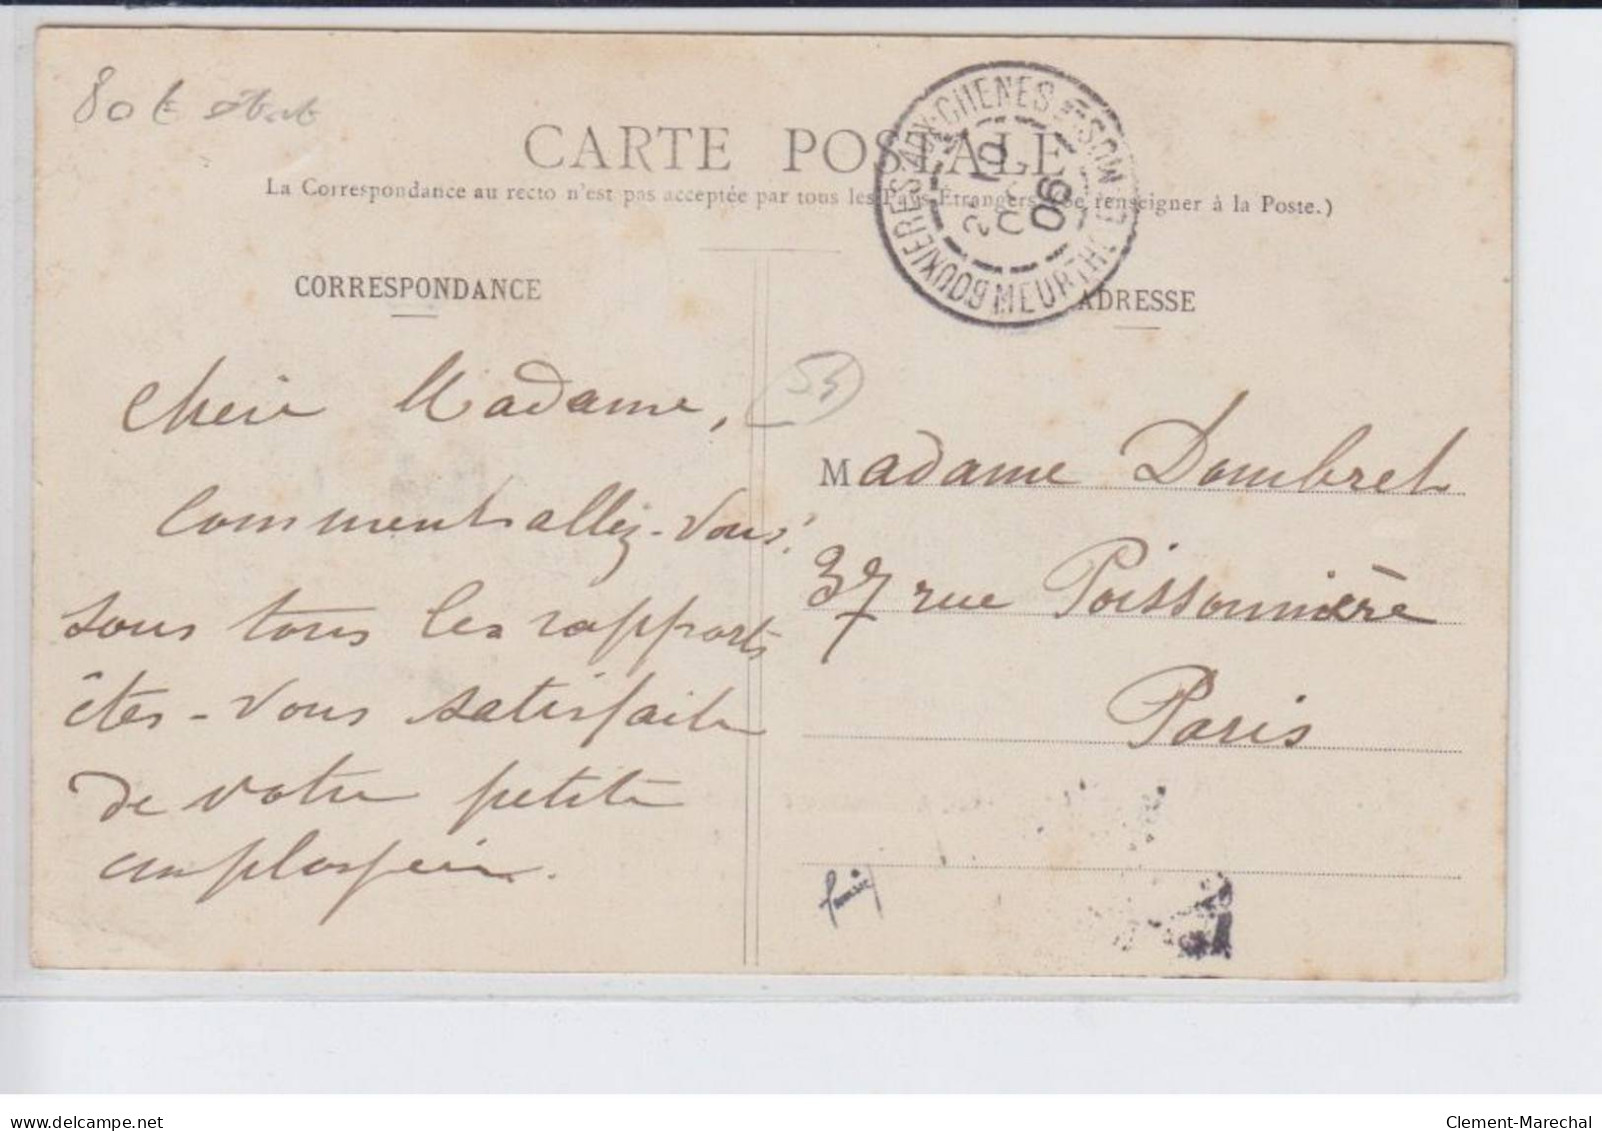 80 €
CARTE POSTALE
La Correspondance au recto n'est pas acceptée par tous les Pays Étrangers (Se renseigner à la Poste.)
BOUXIERES-AUX-CHENES
MEURTHE ET MOS
2
10
06
CORRESPONDANCE
ADRESSE
54
Chère Madame,
Comment allez-vous?
sous tous les rapports
êtes-vous satisfaite
de votre petite
Madame Dombret
37 rue Poissonnière
Paris
www.delcampe.net
Clement-Marechal